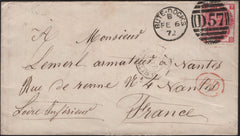 BUTE-DOCKS
B
FE 6
72
D57
A Monsieur
Lemerl armateur à Nantes
Rue de renne No 4 Nantes
Loire Inférieur
France